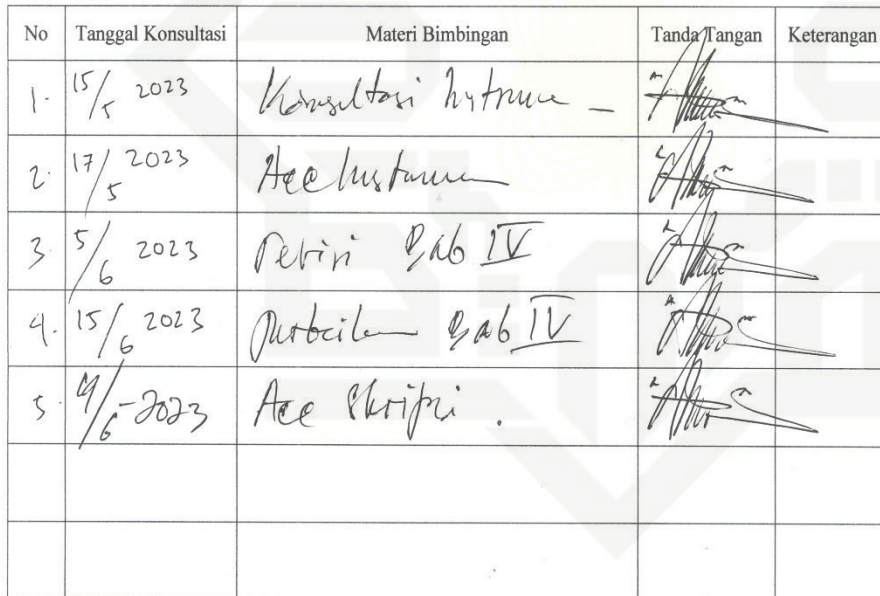 No Tanggal Konsultasi Materi Bimbingan Tanda Tangan Keterangan
1. 15/5 2023 Konsultasi
2. 17/5 2023 Acc
3. 5/6 2023 Revisi Bab IV
4. 15/6 2023 Bab IV
5. /6-2023 Acc Skripsi.